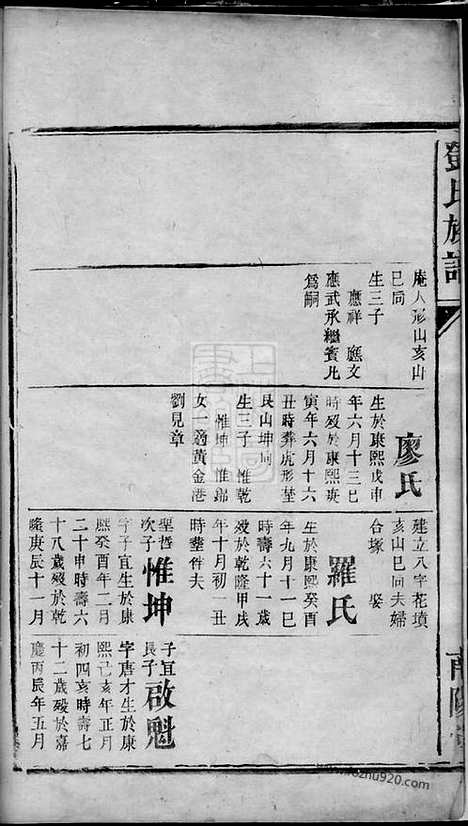 鄧氏族譜
庵人形山亥山
巳向
生三子
應祥 應文
應武承繼賓凡
為嗣
廖氏
生於康熙戊申
年六月十三巳
時歿於康熙庚
寅年六月十六
丑時葬虎形堂
艮山坤向
生三子 惟乾
惟坤 惟歸
女一適黃金港
劉見章
建立八字花墳
亥山巳向夫婦
合塚 娶
羅氏
生於康熙癸酉
年九月十一巳
時壽六十一歲
歿於乾隆甲戌
年十月初一丑
時葬件夫
聖哲
次子惟坤
字子宜生於康
熙癸酉年二月
二十申時壽六
十八歲歿於乾
隆庚辰十一月
子宜
長子啟魁
字唐才生於康
熙己亥年正月
初四亥時壽七
十二歲歿於嘉
慶丙辰年五月
南陽
zhu920.com